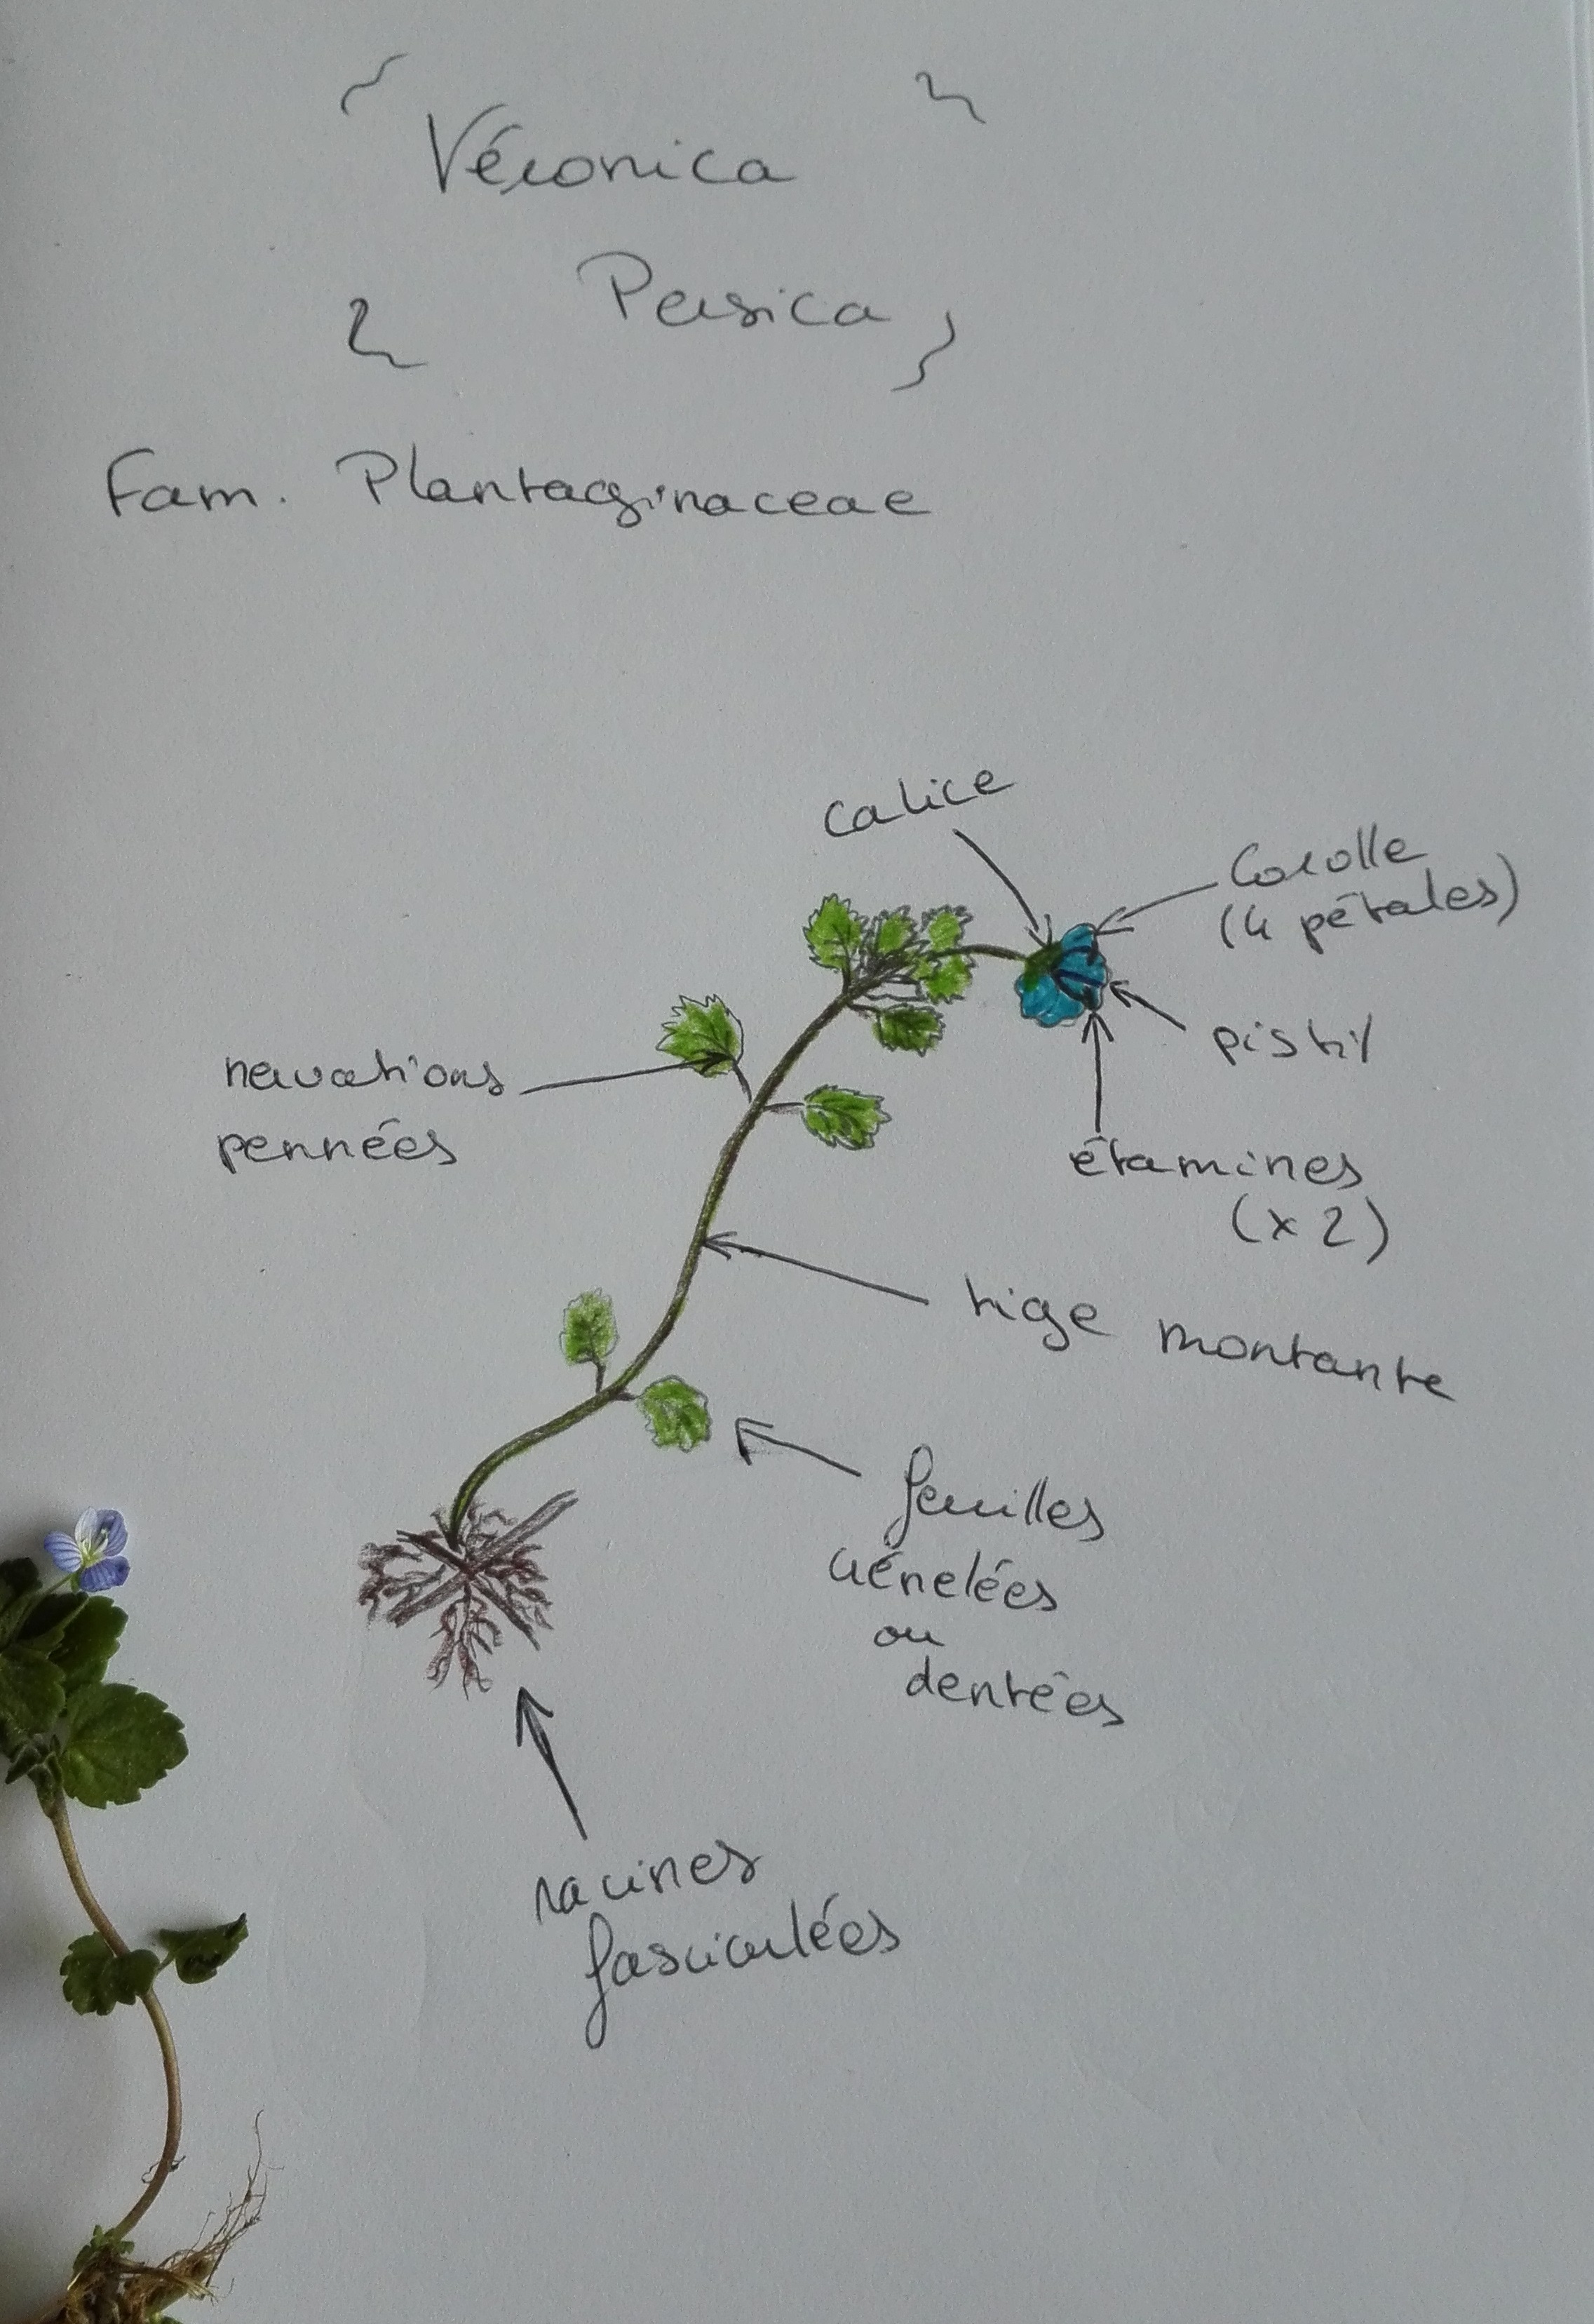 Véronica
Persica
Fam. Plantaginaceae
calice
Corolle
(4 pétales)
pistil
étamines
(x 2)
nervations
pennées
tige montante
feuilles
crénelées
ou
dentées
racines
fasciculées